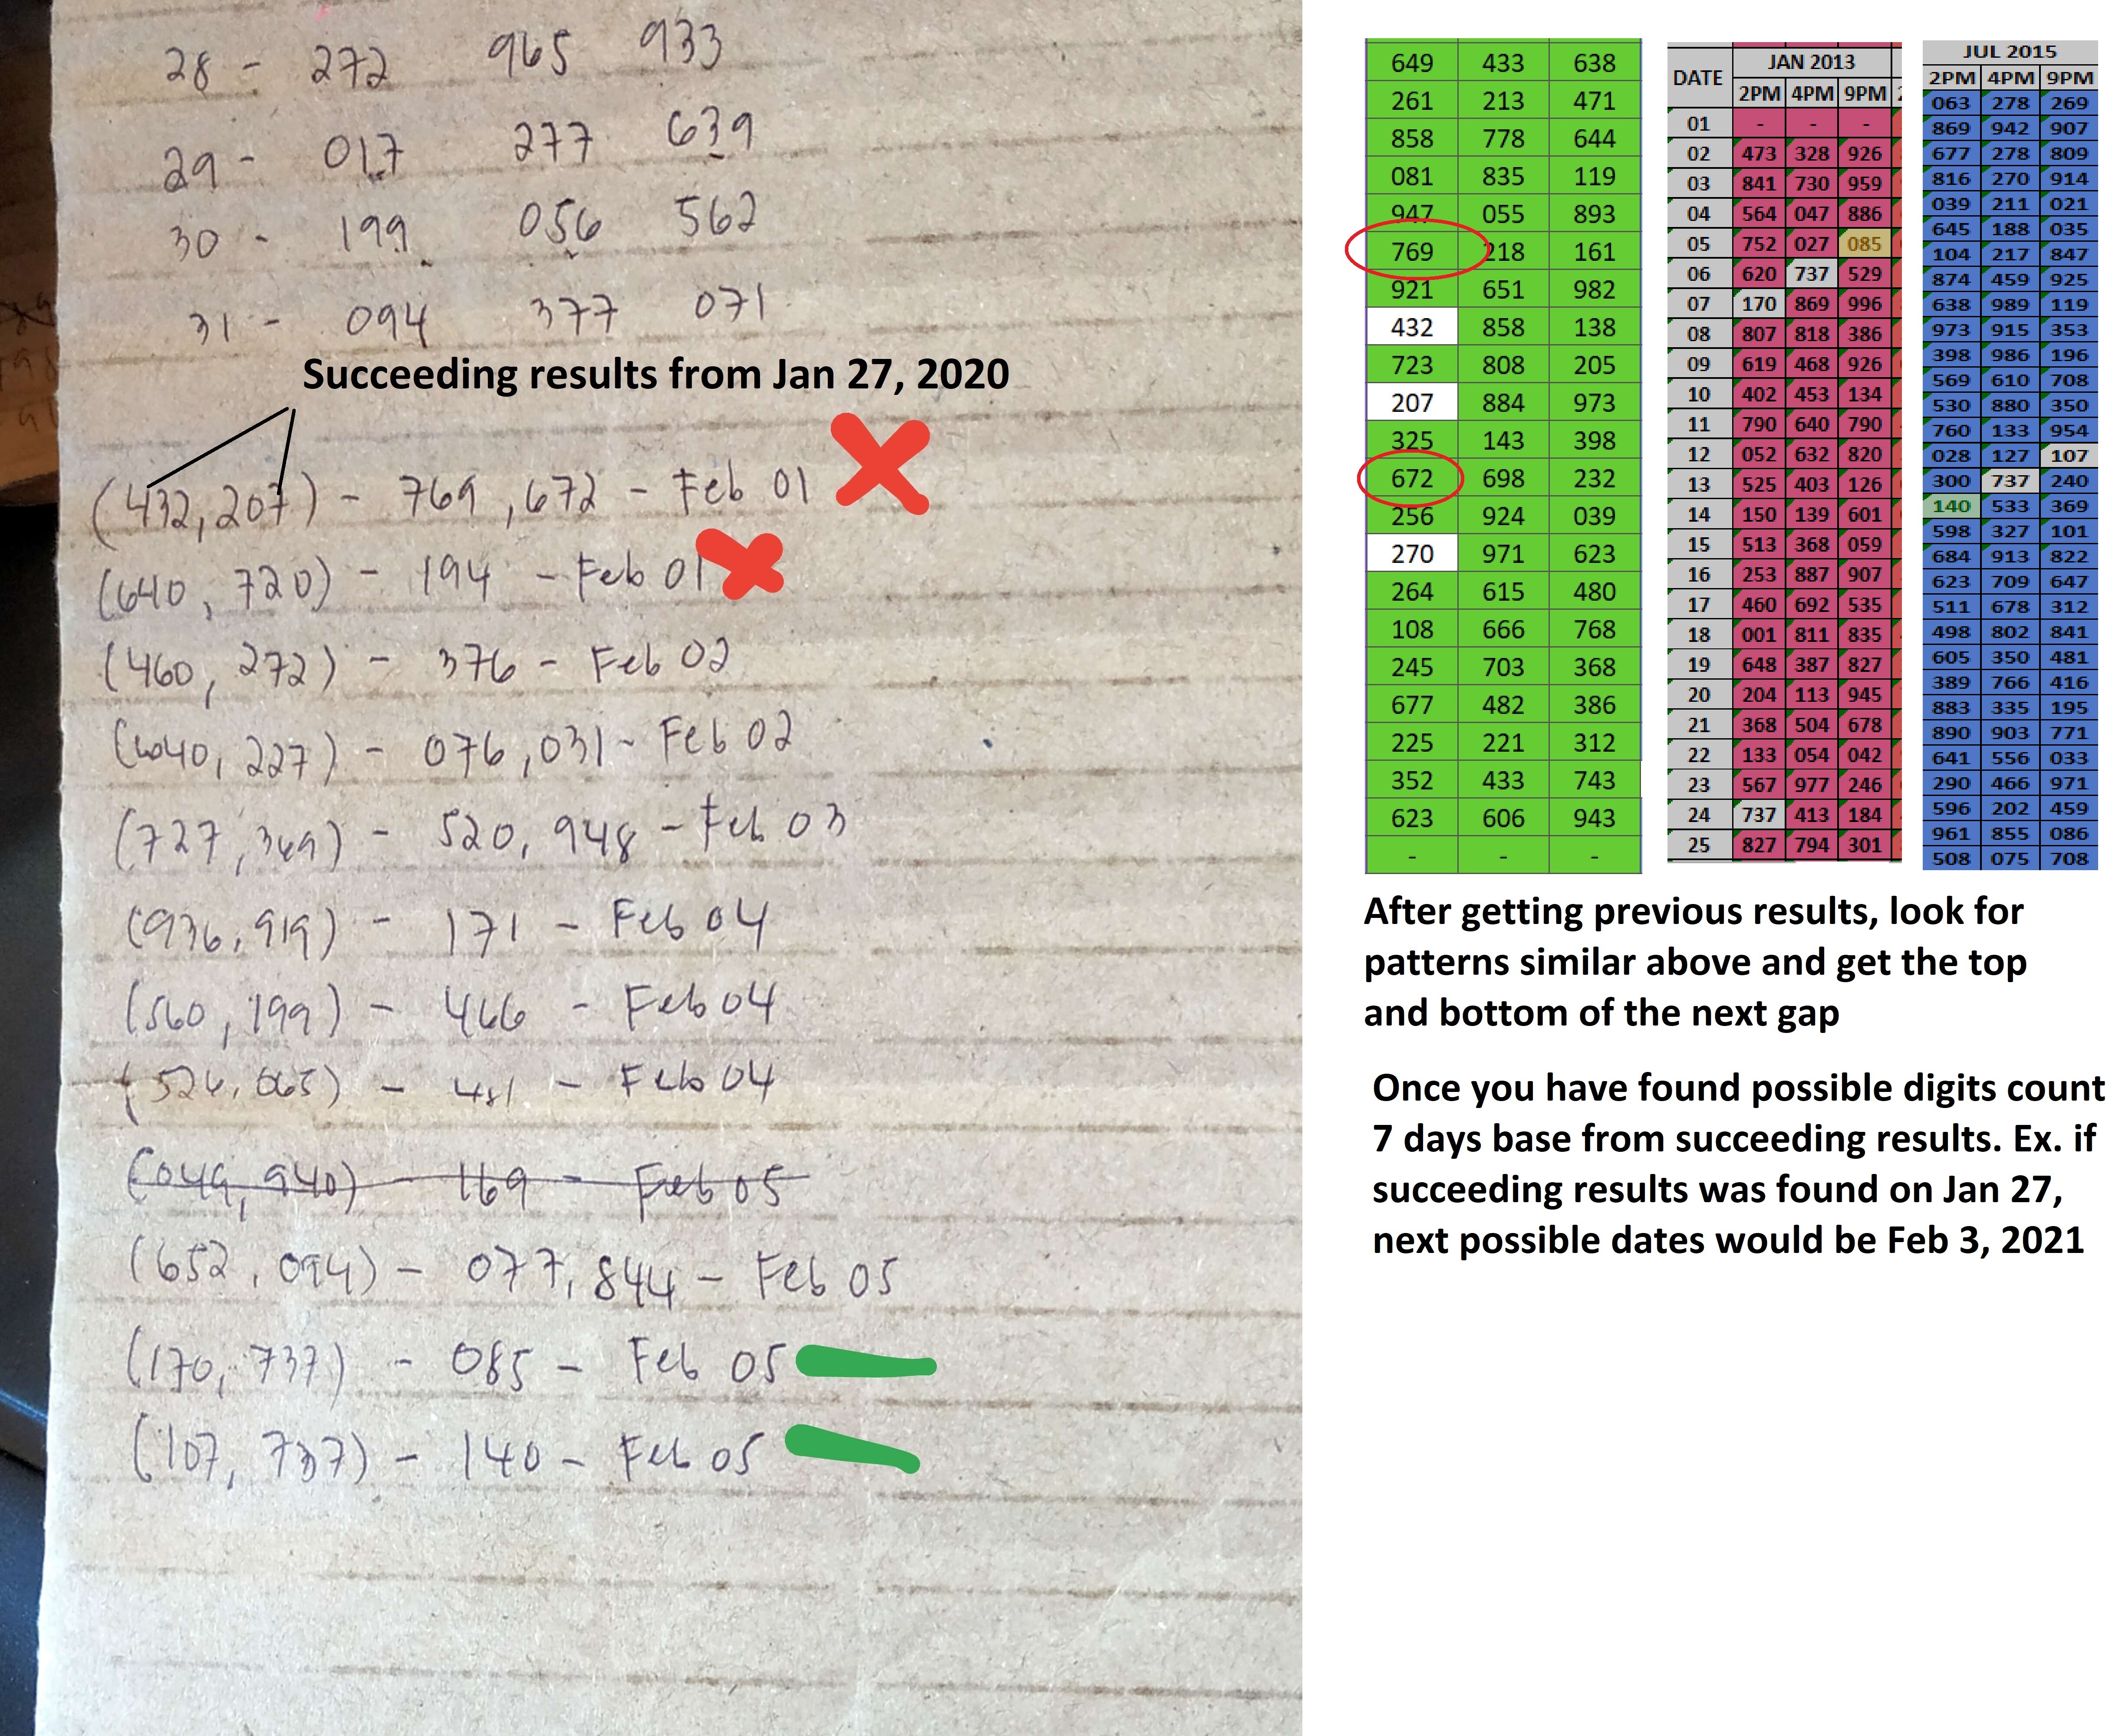 28 - 272 965 933
29 - 017 277 639
30 - 199 056 562
31 - 094 377 071
Succeeding results from Jan 27, 2020
(432, 207) - 769, 672 - Feb 01
(640, 720) - 194 - Feb 01
(460, 272) - 376 - Feb 02
(640, 227) - 076, 031 - Feb 02
(727, 369) - 520, 948 - Feb 03
(936, 919) - 171 - Feb 04
(560, 199) - 466 - Feb 04
(526, 065) - 481 - Feb 04
(049, 940) - 169 - Feb 05
(652, 094) - 077, 844 - Feb 05
(170, 737) - 085 - Feb 05
(107, 737) - 140 - Feb 05
649 433 638
261 213 471
858 778 644
081 835 119
947 055 893
769 218 161
921 651 982
432 858 138
723 808 205
207 884 973
325 143 398
672 698 232
256 924 039
270 971 623
264 615 480
108 666 768
245 703 368
677 482 386
225 221 312
352 433 743
623 606 943
- - -
DATE JAN 2013
2PM 4PM 9PM
01 - - -
02 473 328 926
03 841 730 959
04 564 047 886
05 752 027 085
06 620 737 529
07 170 869 996
08 807 818 386
09 619 468 926
10 402 453 134
11 790 640 790
12 052 632 820
13 525 403 126
14 150 139 601
15 513 368 059
16 253 887 907
17 460 692 535
18 001 811 835
19 648 387 827
20 204 113 945
21 368 504 678
22 133 054 042
23 567 977 246
24 737 413 184
25 827 794 301
JUL 2015
2PM 4PM 9PM
063 278 269
869 942 907
677 278 809
816 270 914
039 211 021
645 188 035
104 217 847
874 459 925
638 989 119
973 915 353
398 986 196
569 610 708
530 880 350
760 133 954
028 127 107
300 737 240
140 533 369
598 327 101
684 913 822
623 709 647
511 678 312
498 802 841
605 350 481
389 766 416
883 335 195
890 903 771
641 556 033
290 466 971
596 202 459
961 855 086
508 075 708
After getting previous results, look for
patterns similar above and get the top
and bottom of the next gap
Once you have found possible digits count
7 days base from succeeding results. Ex. if
succeeding results was found on Jan 27,
next possible dates would be Feb 3, 2021